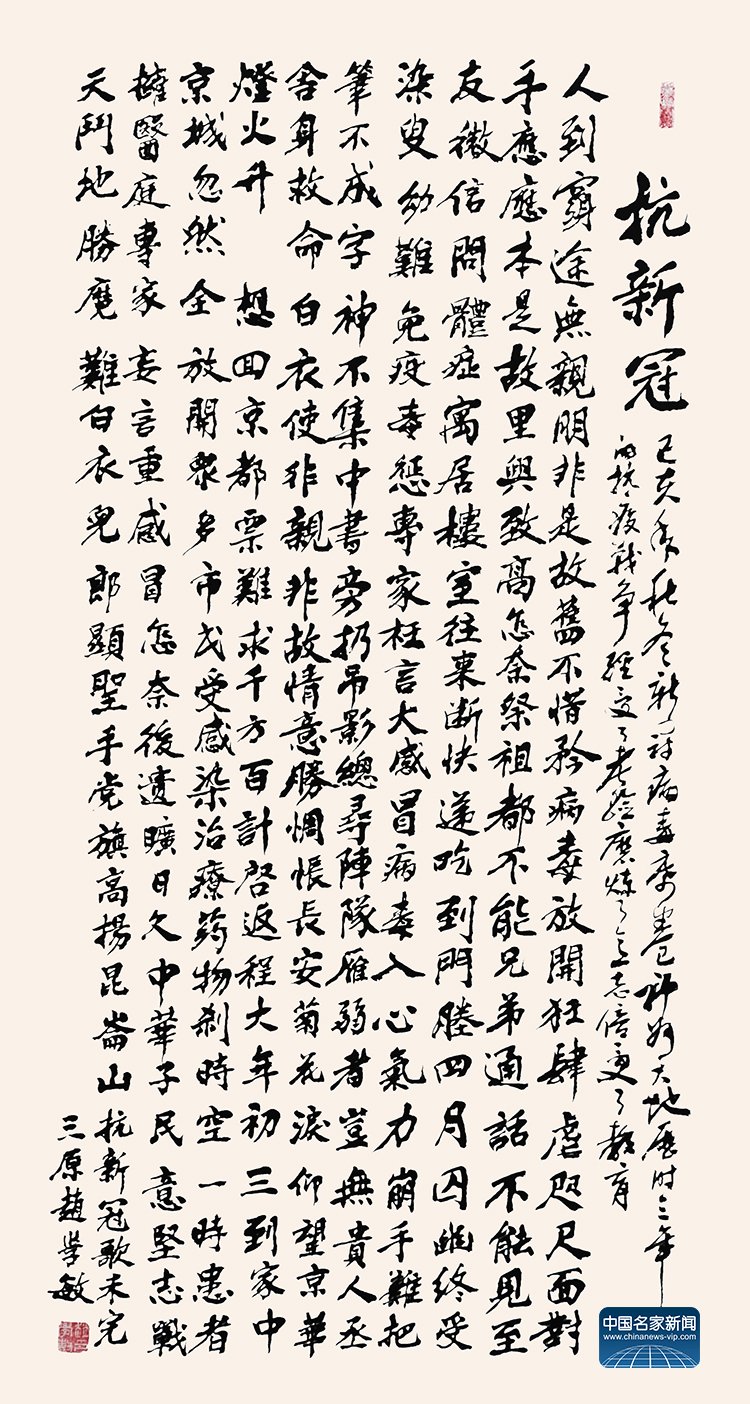 抗新冠
己亥年秋冬新冠病毒席卷神州大地历时三年
的抗疫战争经受了考验磨炼了意志倍受了教育
人到窮途無親朋非是故舊不惜矜病毒放開狂肆虐咫尺面對
手應應本是故里興致高怎奈祭祖都不能兄弟通話不能見至
友微信問體症寓居樓室往來斷快递吃到門塍四月囚幽終受
染叟幼難免疫毒慫專家枉言大感冒病毒入心氣力崩手難把
筆不成字神不集中書旁扔吊影總尋陣隊雁弱者豈無貴人丞
舍身救命白衣使非親非故情意勝惆悵长安菊花淚仰望京華
燈火升想回京都票難求千方百計啓返程大年初三到家中
京城忽然全放開衆多市民受感染治療药物刹時空一時患者
擁醫庭專家妄言重感冒怎奈後遺曠日久中華子民意堅志戰
天鬥地勝魔難白衣兒郎顯聖手党旗高揚昆崙山
抗新冠歌未完
三原趙學敏
中国名家新闻
www.chinanews-vip.com